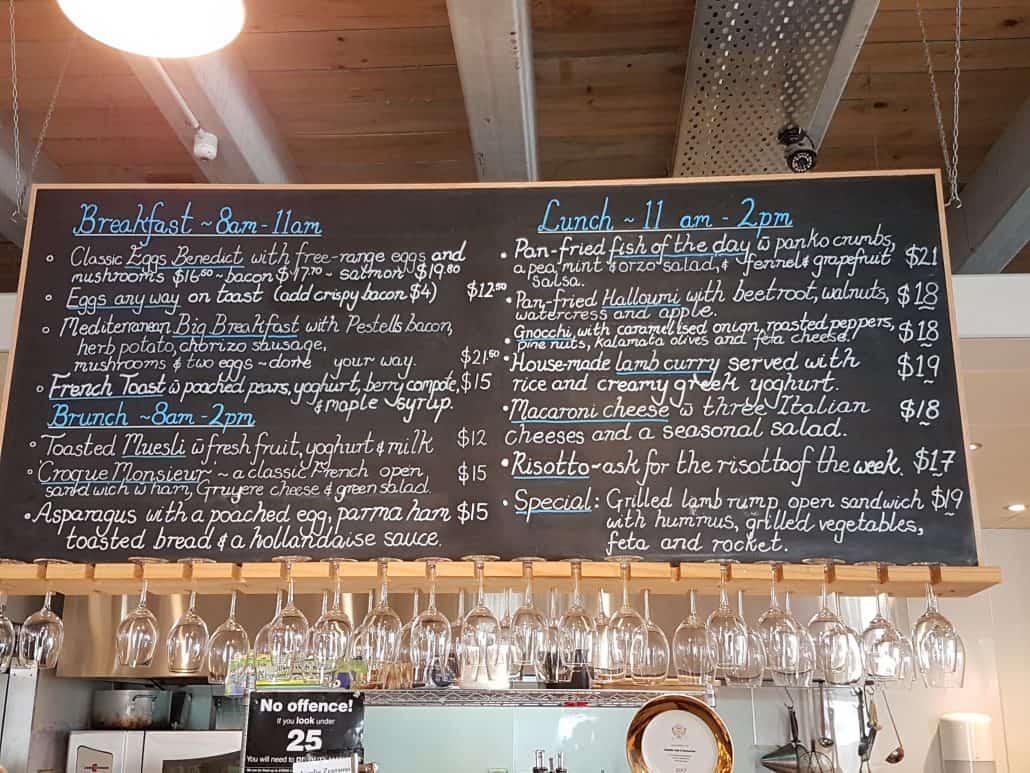 Breakfast ~ 8am - 11am
Classic Eggs Benedict with free-range eggs and
mushrooms $16.50 ~ bacon $17.70 ~ salmon $19.80
Eggs any way on toast (add crispy bacon $4) $12.50
Mediterranean Big Breakfast with Pestells bacon,
herb potato, chorizo sausage,
mushrooms & two eggs ~ done your way. $21.50
French Toast w poached pears, yoghurt, berry compote, $15
& maple syrup.
Brunch ~ 8am - 2pm
Toasted Muesli w fresh fruit, yoghurt & milk $12
Croque Monsieur ~ a classic French open $15
sandwich w ham, Gruyere cheese & green salad.
Asparagus with a poached egg, parma ham $15
toasted bread & a hollandaise sauce.
Lunch ~ 11 am - 2pm
Pan-fried fish of the day w panko crumbs, $21
a pea, mint & orzo salad, & fennel & grapefruit
salsa.
Pan-fried Halloumi with beetroot, walnuts, $18
watercress and apple.
Gnocchi, with caramelised onion, roasted peppers, $18
pine nuts, kalamata olives and feta cheese.
House-made lamb curry served with $19
rice and creamy greek yoghurt.
Macaroni cheese w three Italian $18
cheeses and a seasonal salad.
Risotto - ask for the risotto of the week. $17
Special: Grilled lamb rump open sandwich $19
with hummus, grilled vegetables,
feta and rocket.
No offence!
If you look under
25
You will need to